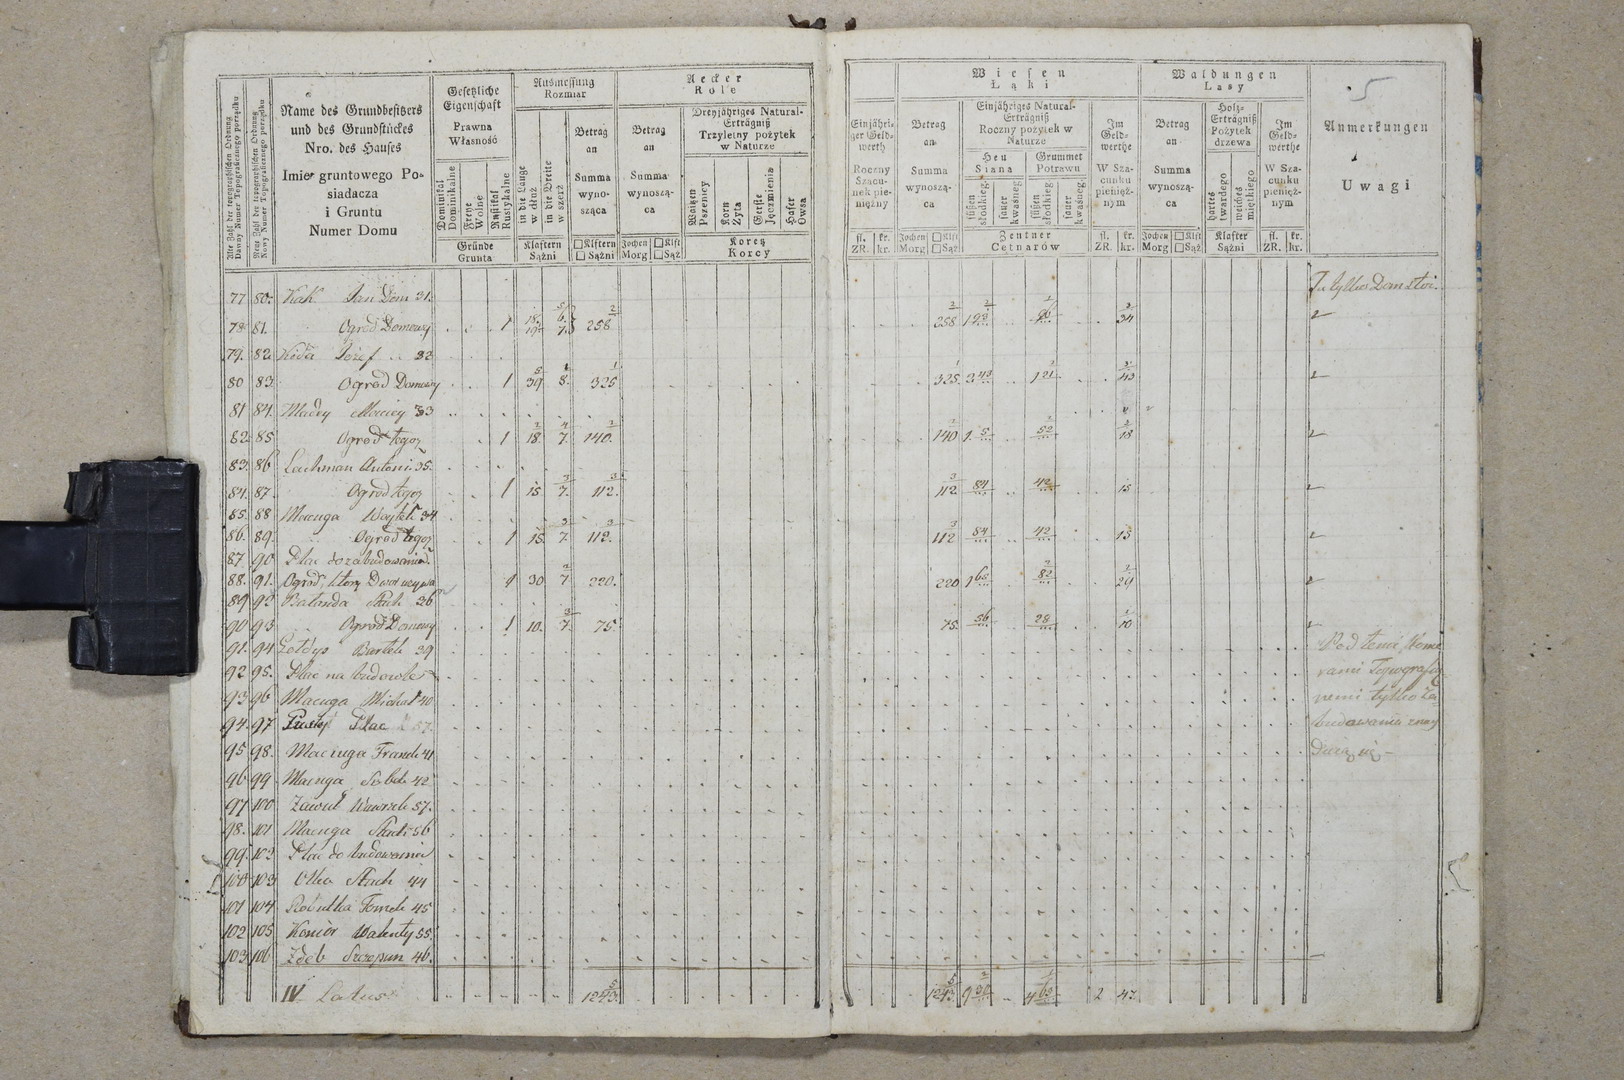 Alte Zahl der topographischen Ordnung
Dawny Numer Topograficznego porządku
Neue Zahl der topographischen Ordnung
Nowy Numer Topograficznego porządku
Name des Grundbesitzers
und des Grundstückes
Nro. des Hauses
Imie gruntowego Po-
siadacza
i Gruntu
Numer Domu
Gesetzliche
Eigenschaft
Prawna
Własność
Dominikal
Dominikalne
Freye
Wolne
Rustikal
Rustykalne
Gründe
Grunta
Ausmessung
Rozmiar
in die Länge
w dłuż
in die Breite
w szerz
Klaftern
Sążni
Betrag
an
Summa
wyno-
sząca
□Klftern
□ Sążni
Aecker
Role
Betrag
an
Summa
wynoszą-
ca
Jochen
Morg
□Klft
□Sąż
Dreyjähriges Natural-
Erträgniß
Trzyletny pożytek
w Naturze
Waitzen
Pszenicy
Korn
Zyta
Gerste
Jęczmienia
Hafer
Owsa
Koretz
Korcy
Einjähri-
ger Geld-
werth
Roczny
Szacu-
nek pie-
niężny
fl. kr.
ZR. kr.
Wiesen
Łąki
Betrag
an
Summa
wynoszą-
ca
Jochen
Morg
□Klft
□Sąż
Einjähriges Natural-
Erträgniß
Roczny pożytek w
Naturze
Heu
Siana
Grummet
Potrawu
süßen
słodkieg.
sauer
kwasneg
süßen
słodkieg
sauer
kwasneg
Zentner
Cetnarów
Im
Geld-
werthe
W Sza-
cunku
pienięż-
nym
fl. kr.
ZR. kr.
Waldungen
Lasy
Betrag
an
Summa
wynoszą-
ca
Jochen
Morg
□Klft
□Sąż
Holz-
Erträgniß
Pożytek
drzewa
hartes
twardego
weiches
miętkiego
Klafter
Sążni
Im
Geld-
werthe
W Sza-
cunku
pienięż-
nym
fl. kr.
ZR. kr.
5
Anmerkungen
Uwagi
77 80. Kak Jan Dom 31. Tu tylko Dom stoi.
78 81. Ogrod Domowy 1 258 258 34
79. 82 Józef 32
80 83 Ogrod Domowy 1 39 8. 325 325 43
81 84. Maciey 33
82. 85 Ogrod tegoż 1 18. 7. 140. 140 18
83. 86 Lachman Antoni 35.
84. 87. Ogrod tegoż 1 15 7. 112. 112 84 42 15
85. 88 Macuga Woytek 34
86. 89. Ogrod tegoż 1 15. 7 112. 112 84 42 15
87. 90 Plac do zabudowania
88. 91. Ogrod, Dwor używa 1 30 7 220. 220 29
89 92 Balanda Stach 36
90 93 Ogrod Domowy 1 10. 7. 75. 75. 56 28 10
91. 94 Bartek 39 Pod temi Nome
92 95. Plac na budowle rami Topografi
93 96 Macuga Michał 40 nemi tylko Za
94. 97 Pusty Plac 57. budowania znay
95 98. Maciuga Franek 41 duią się
96 99 Macuga Sobek 42
97 100 Wawrzek 57.
98. 101 Macuga Stach 56
99. 102 Plac do budowania
100 103 Stach 44
101 104 Tomek 45
102 105 Konior Walenty 55.
103 106 Zdeb Szczepan 46.
IV Latus 1243. 1243 2 47.